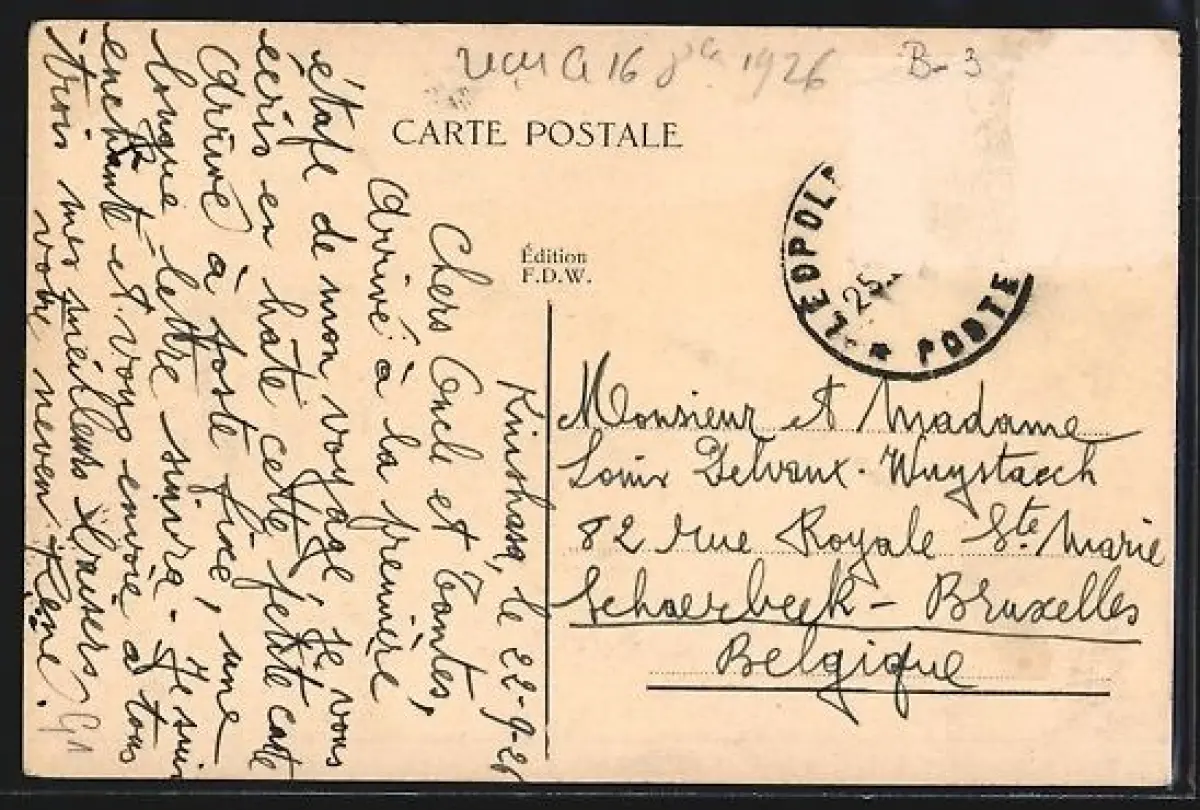 reçu le 16 8bre 1926
B-3
CARTE POSTALE
Édition
F.D.W.
LEOPOLD
25
POSTE
Kinshasa, le 22-9-26
Chers Oncle et Tantes,
Arrivé à la première
étape de mon voyage je vous
écris en hâte cette petite carte
Arrivé à poste fixe, une
longue lettre suivra. Je suis
enchanté et vous envoie à tous
trois mes meilleurs baisers
votre neveu René.
Monsieur et Madame
Louis Delvaux-Wuystaech
82 rue Royale Ste Marie
Schaerbeek - Bruxelles
Belgique